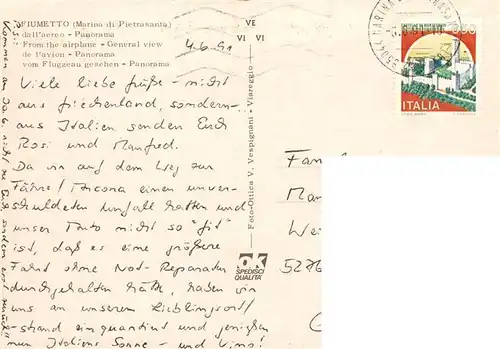 FIUMETTO (Marina di Pietrasanta)
dall'aereo - Panorama
From the airplane - General view
de l'avion - Panorama
vom Flugzeug gesehen - Panorama
VE
VI VI
4.6.91
Viele liebe Grüße - nicht
aus Griechenland, sondern -
aus Italien senden Euch
Rosi und Manfred.
Da wir auf dem Weg zur
Fähre / Ancona einen unver-
schuldeten Unfall hatten und
unser Auto nicht so "fit"
ist, daß es eine größere
Fahrt ohne Not-Reparatur
durchgehalten hätte, haben wir
uns an unserem Lieblingsort/
-strand einquartiert und genießen
nun Italiens Sonne - und Vino!
Foto-Ottica V. Vespignani - Viareggio
OK
SPEDISCI
QUALITÀ
ITALIA
Fam
Man
Wei